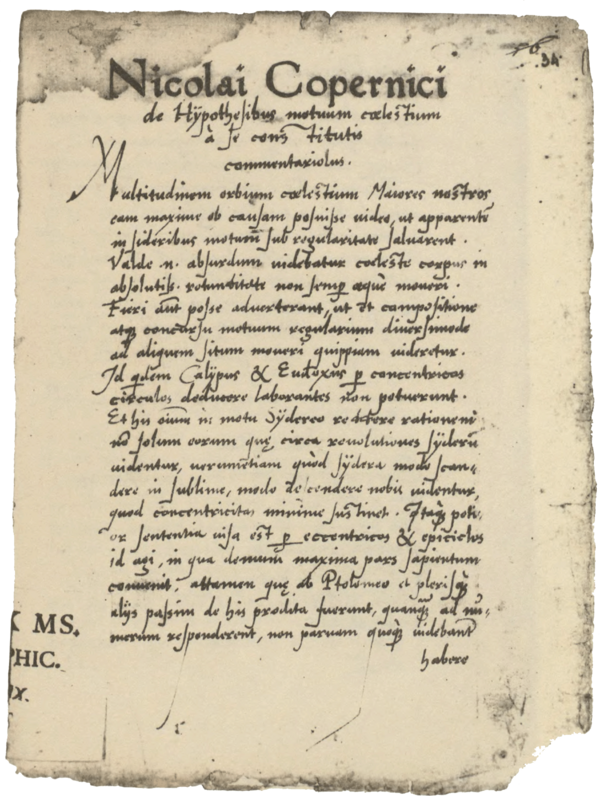 34
Nicolai Copernici
de Hÿpothesibus motuum cœlestium
à se constitutis
commentariolus.
Multitudinem orbium cœlestium Maiores nostros
eam maxime ob causam posuisse video, ut apparentē
in sideribus motum̄ sub regularitate salvarent.
Valde .n. absurdum videbatur cœleste corpus in
absolutiss. rotunditate non semp̱ æquè moveri.
Fieri aūt posse adverterant, ut et compositione
atq̨ concursu motuum regularium diversimode
ad aliquem situm moveri quippiam videretur.
Id q̄dem Calÿpus & Eudoxus p̱ concentricos
circulos deducere laborantes non potuerunt.
Et his oīum in motu Sÿdereo reddere rationem
nō solum eorum quę circa revolutiones sÿderū
videntur, verumetiam quòd sÿdera modo scan-
dere in sublime, modo descendere nobis videntur,
quod concentricitas minime sustinet. Itaq̨ poti-
or sententia visa est p̱ eccentricos & epiciclos
id agi, in qua demum maxima pars sapientum
convenit, attamen quę ab Ptolomeo et plerisq̨
alÿs passim de his prodita fuerant, quanq̨ ad nu-
merum responderent, non parvam quoq̨ videbant
habere
K MS.
PHIC.
IX.